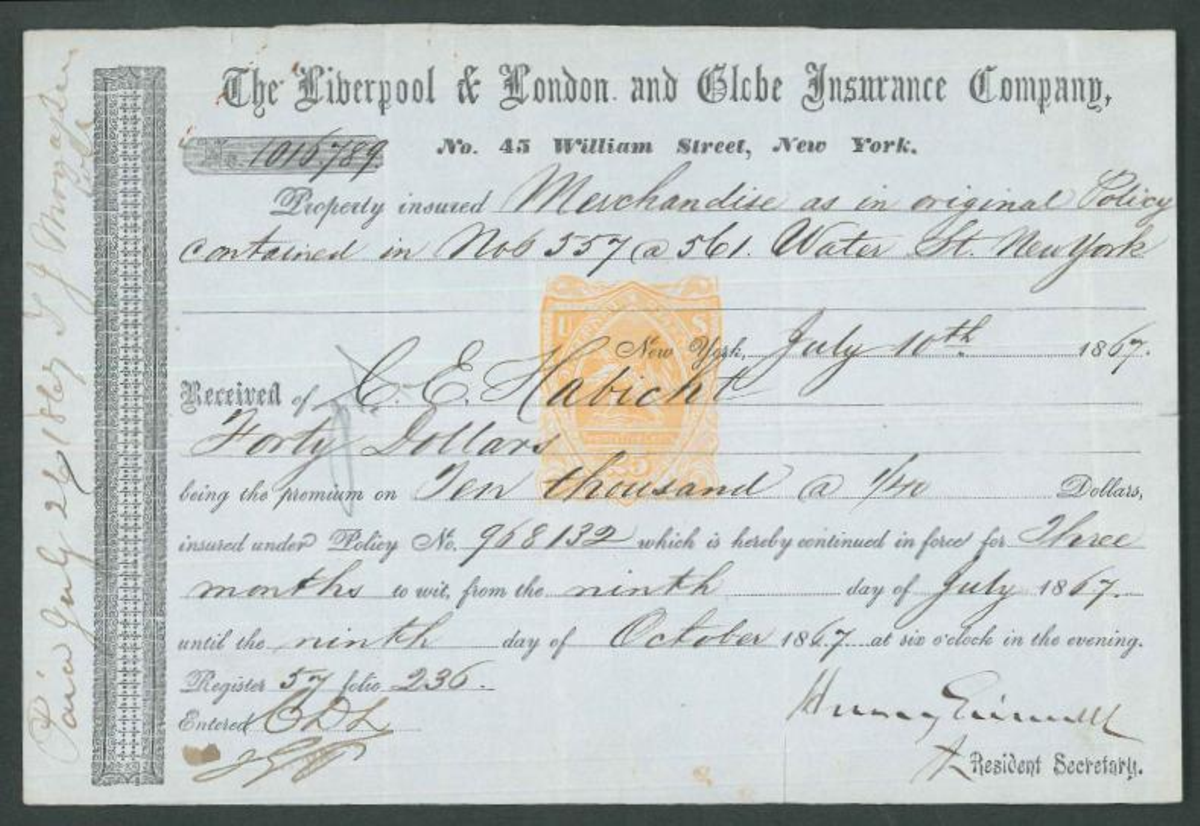 The Liverpool & London and Globe Insurance Company,
No. 45 William Street, New York.
No. 1015789
Property insured Merchandise as in original Policy
contained in Nos 557 @ 561. Water St. New York
U S
New York, July 10th 1867.
Received of C. E. Habicht
Forty Dollars
being the premium on Ten thousand @ 1/40 Dollars,
insured under Policy No. 968132 which is hereby continued in force for Three
months to wit, from the ninth day of July 1867.
until the ninth day of October 1867. at six o'clock in the evening.
Register 57 folio 236.
Entered CDL
Resident Secretary.
Paid July 26 1867